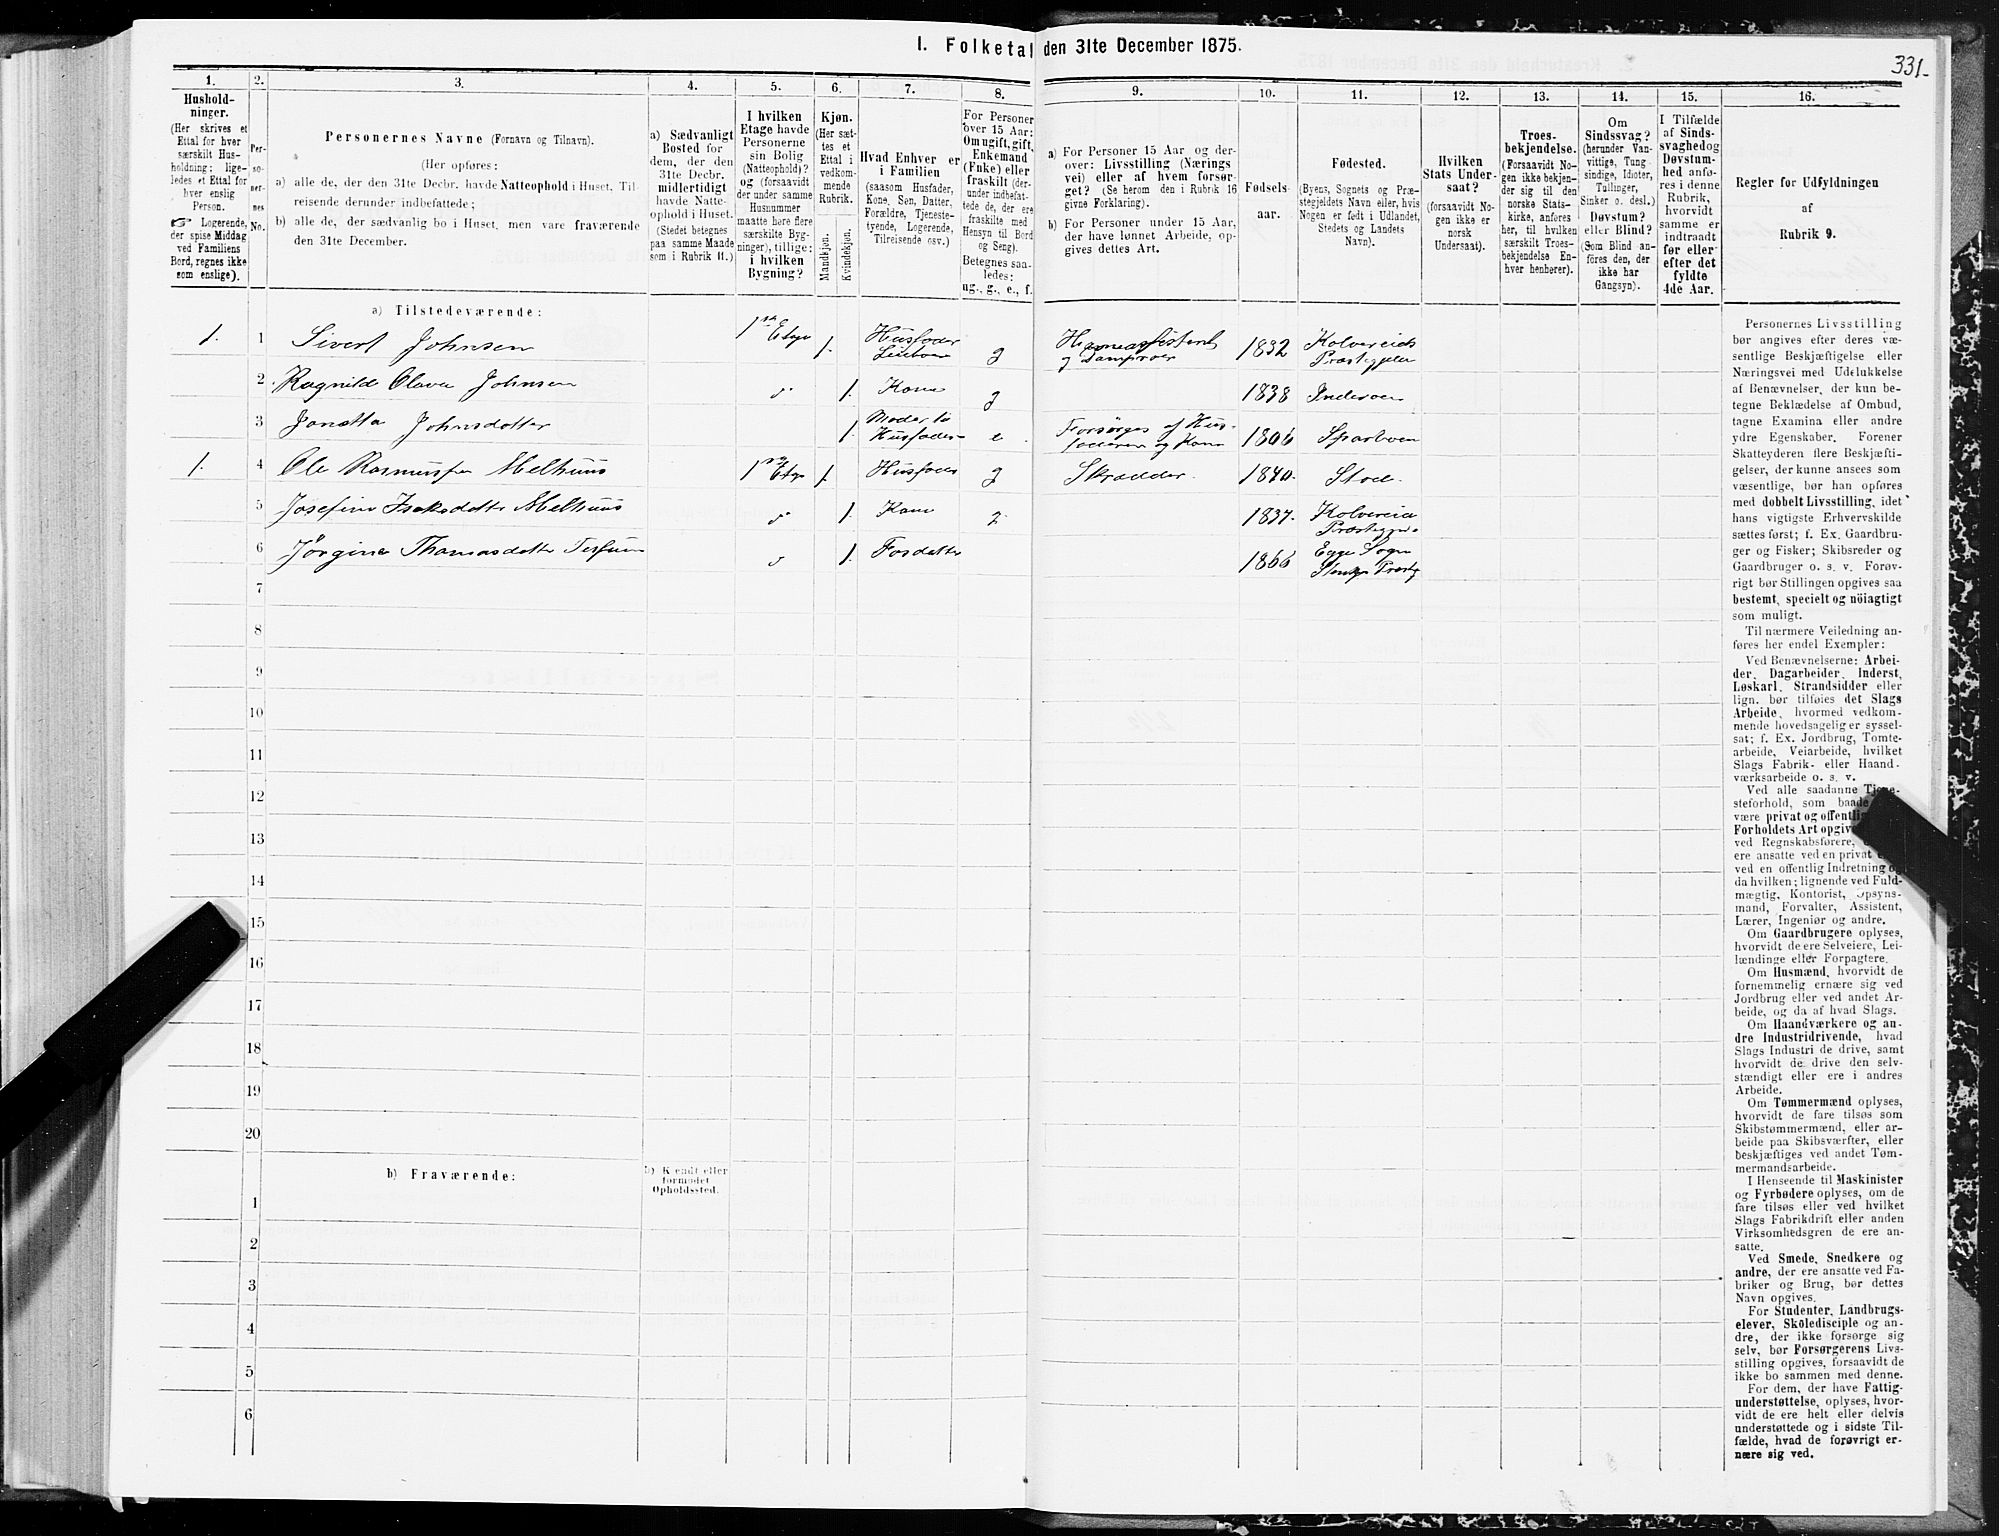 I. Folketal den 31te December 1875.
331.
1.
2.
3.
4.
5.
6.
7.
8.
9.
10.
11.
12.
13.
14.
15.
16.
Hushold-
ninger.
(Her skrives et
Ettal for hver
særskilt Hus-
holdning; lige-
ledes et Ettal for
hver enslig
Person.
☞ Logerende,
der spise Middag
ved Familiens
Bord, regnes ikke
som enslige).
Per-
so-
ner-
nes
No.
Personernes Navne (Fornavn og Tilnavn).
(Her opføres:
a) alle de, der den 31te Decbr. havde Natteophold i Huset, Til-
reisende derunder indbefattede;
b) alle de, der sædvanlig bo i Huset, men vare fraværende
den 31te December.
a) Sædvanligt
Bosted for
dem, der den
31te Decbr.
midlertidigt
havde Natte-
ophold i Huset.
(Stedet betegnes
paa samme Maade
som i Rubrik 11.)
I hvilken
Etage havde
Personerne
sin Bolig
(Natteophold)?
og (forsaavidt
der under samme
Husnummer
maatte høre flere
særskilte Byg-
ninger), tillige:
i hvilken
Bygning?
Kjøn.
(Her sæt-
tes et
Ettal i
vedkom-
mende
Rubrik.
Mandkjøn.
Kvindekjøn.
Hvad Enhver er
i Familien
(saasom Husfader,
Kone, Søn, Datter,
Forældre, Tjeneste-
tyende, Logerende,
Tilreisende osv.)
For Personer
over 15 Aar:
Om ugift, gift,
Enkemand
(Enke) eller
fraskilt (der-
under indbefat-
tede de, der ere
fraskilte med
Hensyn til Bord
og Seng).
Betegnes saa-
ledes:
ug., g., e., f.
a) For Personer 15 Aar og der-
over: Livsstilling (Nærings
vei) eller af hvem forsør-
get? (Se herom den i Rubrik 16
givne Forklaring).
b) For Personer under 15 Aar,
der have lønnet Arbeide, op-
gives dettes Art.
Fødsels-
aar.
Fødested.
(Byens, Sognets og Præ-
stegjeldets Navn eller, hvis
Nogen er født i Udlandet,
Stedets og Landets
Navn).
Hvilken
Stats Under-
saat?
(forsaavidt No-
gen ikke er
norsk
Undersaat).
Troes-
bekjendelse.
(Forsaavidt No-
gen ikke bekjen-
der sig til den
norske Stats-
kirke, anføres
her, til hvilken
særskilt Troes-
bekjendelse En-
hver henhører).
Om
Sindssvag?
(herunder Van-
vittige, Tung-
sindige, Idioter,
Tullinger,
Sinker o. desl.)
Døvstum?
eller Blind?
(Som Blind an-
føres den, der
ikke har
Gangsyn).
I Tilfælde
af Sinds-
svaghed og
Døvstum-
hed anfø-
res i denne
Rubrik,
hvorvidt
samme er
indtraadt
før eller
efter det
fyldte
4de Aar.
Regler for Udfyldningen
af
Rubrik 9.
a) Tilstedeværende:
1. 1 Sivert Johnsen 1ste Etage 1. Husfader g 1832 Kolvereids Præstegjeld
2 Ragnild Olava Johnsen 1. Kone g 1838 Inderøen
3 Janetta Johnsdatter 1. Moder til Husfader e. Forsørges af Hus- faderen og Kone 1806 Sparboen
1. 4 Ole Rasmussen Melhuus 1ste Etage 1. Husfader g Skrædder. 1840. Stod.
5 Josefine Isaksdatter Melhuus 1. Kone g. 1837. Kolvereid Præstegjeld
6 Jørgine Thomasdatter 1. Fosdatter 1866 Egge Sogn
7
8
9
10
11
12
13
14
15
16
17
18
19
20
b) Fraværende:
b) Kjendt eller
formodet
Opholdssted.
1
2
3
4
5
6
Personernes Livsstilling
bør angives efter deres væ-
sentlige Beskjæftigelse eller
Næringsvei med Udelukkelse
af Benævnelser, der kun be-
tegne Beklædelse af Ombud,
tagne Examina eller andre
ydre Egenskaber. Forener
Skatteyderen flere Beskjæfti-
gelser, der kunne ansees som
væsentlige, bør han opføres
med dobbelt Livsstilling, idet
hans vigtigste Erhvervskilde
sættes først; f. Ex. Gaardbru-
ger og Fisker; Skibsreder og
Gaardbruger o. s. v. Forøv-
rigt bør Stillingen opgives saa
bestemt, specielt og nöiagtigt
som muligt.
Til nærmere Veiledning an-
føres her endel Exempler:
Ved Benævnelserne: Arbei-
der, Dagarbeider, Inderst,
Løskarl, Strandsidder eller
lign. bør tilføies det Slags
Arbeide, hvormed vedkom-
mende hovedsagelig er syssel-
sat; f. Ex. Jordbrug, Tomte-
arbeide, Veiarbeide, hvilket
Slags Fabrik- eller Haand-
værksarbeide o. s. v.
Ved alle saadanne Tjene-
steforhold, som baade
være privat og offentlig
Forholdets Art opgiv
ved Regnskabsførere,
ere ansatte ved en privat
ved en offentlig Indretning og
da hvilken; lignende ved Fuld-
mægtig, Kontorist, Opsyns-
mand, Forvalter, Assistent,
Lærer, Ingeniør og andre.
Om Gaardbrugere oplyses,
hvorvidt de ere Selveiere, Lei-
lændinge eller Forpagtere.
Om Husmænd, hvorvidt de
fornemmelig ernære sig ved
Jordbrug eller ved andet Ar-
beide, og da af hvad Slags.
Om Haandværkere og an-
dre Industridrivende, hvad
Slags Industri de drive, samt
hvorvidt de drive den selv-
stændigt eller ere i andres
Arbeide.
Om Tømmermænd oplyses,
hvorvidt de fare tilsøs som
Skibstømmermænd, eller ar-
beide paa Skibsværfter, eller
beskjæftiges ved andet Tøm-
mermandsarbeide.
I Henseende til Maskinister
og Fyrbødere oplyses, om de
fare tilsøs eller ved hvilket
Slags Fabrikdrift eller anden
Virksomhedsgren de ere an-
satte.
Ved Smede, Snedkere og
andre, der ere ansatte ved Fa-
briker og Brug, bør dettes
Navn opgives.
For Studenter, Landbrugs-
elever, Skoledisciple og an-
dre, der ikke forsørge sig
selv, bør Forsørgerens Livs-
stilling opgives, forsaavidt de
ikke bo sammen med denne.
For dem, der have Fattig-
understøttelse, oplyses, hvor-
vidt de ere helt eller delvis
understøttede og i sidste Til-
fælde, hvad de forøvrigt er-
nære sig ved.